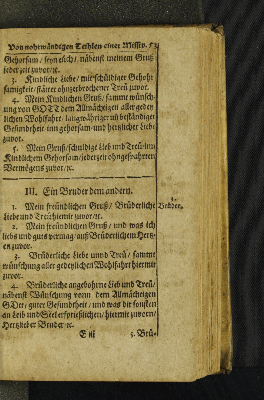 Von nohtwändigen Teihlen einer Messiv. 53
Gehorsam / seyn euch / nähenst meinem Gruß
jederzeit zuvor / ꝛc.
3. Kindliche Liebe / mit schüldiger Gehohr
samigkeit / stäter ohnzerbrochener Treü zuvor.
4. Mein Kindlichen Gruß / sammt wünsch-
ung von GOTT dem Allmächtigen aller gedey
lichen Wohlfahrt / langwähriger uñ beständiger
Gesundtheit uñ gehorsam- und hertzlicher Lieb
zuvor.
5. Mein Gruß / schuldige Lieb und Treü / uñ
Kindlichem Gehorsam / jederzeit ohngesparten
Vermögens zuvor / ꝛc.
III. Ein Bruder dem andern.
1. Mein freündlichen Gruß / Brüderliche
Brüder.
Liebe und Treü hiemit zuvor / ꝛc.
2. Mein freündlichen Gruß / und was ich
liebs und guts vermag / auß Brüderlichem Hertz-
en zuvor.
3. Brüderliche Liebe unnd Treü / sammt
wünschung aller gedeylichen Wohlfahrt hiermit
zuvor.
4. Brüderliche angebohrne Lieb und Treü /
nähenst Wünschung vonn dem Allmächtigen
GOtt / guter Gesundtheit / und was dir sonsten
an Leib und Seel ersprießlichen / hiermit zuvorn /
Hertzlieber Bruder / ꝛc.
5. Brü-